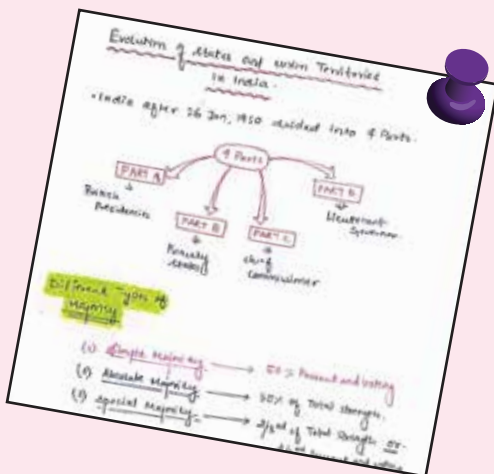 Evolution of States and Union Territories
in India.
• India after 26 Jan, 1950 divided into 4 Parts.
4 Parts
PART A
British
Presidencies
PART B
Princely
States
PART C
Chief
Commissioner
PART D
Lieutenant
Governor
Different Types of
Majority
(1) Simple Majority → 50% Present and voting
(2) Absolute Majority → 50% of Total strength.
(3) Special Majority → 2/3rd of Total Strength or
Present and